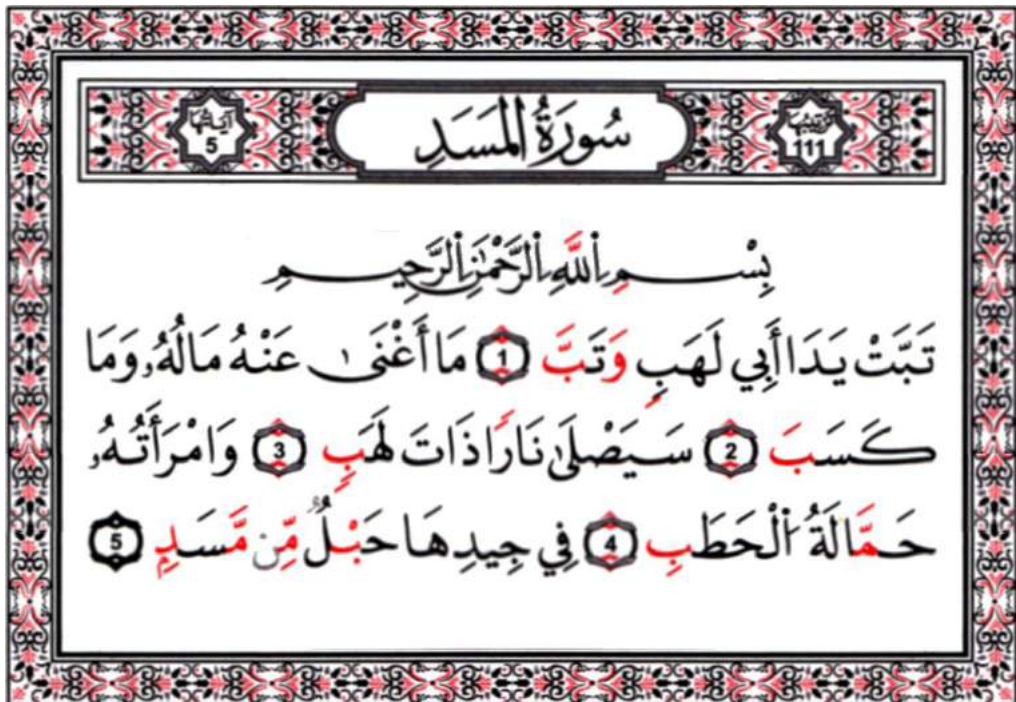 ترتيبها 111
سُورَةُ الْمَسَدِ
آيَاتُهَا 5
بِسْمِ اللَّهِ الرَّحْمَٰنِ الرَّحِيمِ
تَبَّتْ يَدَا أَبِي لَهَبٍ وَتَبَّ 1 مَا أَغْنَىٰ عَنْهُ مَالُهُۥ وَمَا
كَسَبَ 2 سَيَصْلَىٰ نَارًا ذَاتَ لَهَبٍ 3 وَامْرَأَتُهُۥ
حَمَّالَةُ الْحَطَبِ 4 فِي جِيدِهَا حَبْلٌ مِّن مَّسَدٍ 5